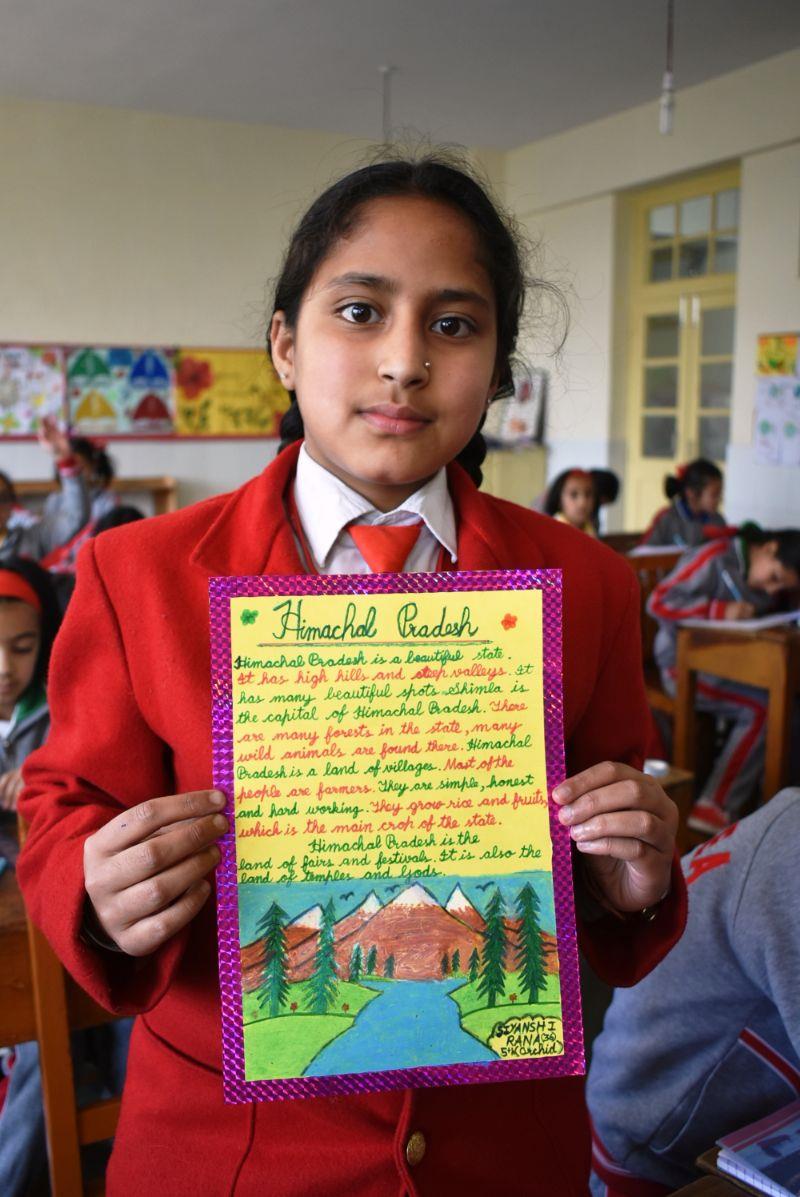 Himachal Pradesh
Himachal Pradesh is a beautiful state.
It has high hills and steep valleys. It
has many beautiful spots. Shimla is
the capital of Himachal Pradesh. There
are many forests in the state, many
wild animals are found there. Himachal
Pradesh is a land of villages. Most of the
people are farmers. They are simple, honest
and hard working. They grow rice and fruits,
which is the main crop of the state.
Himachal Pradesh is the
land of fairs and festivals. It is also the
land of temples and Gods.
SIYANSHI
RANA (36)
5th Orchid